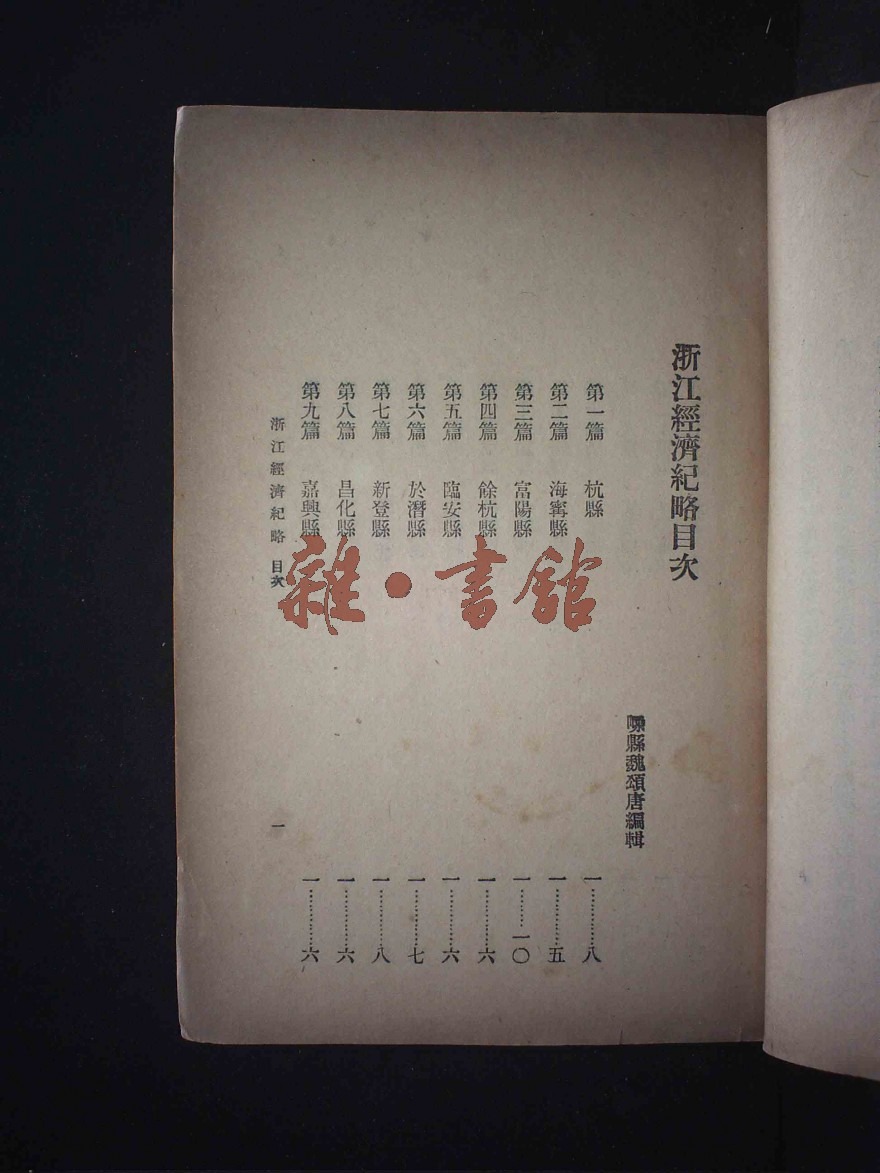 浙江經濟紀略目次
嵊縣魏頌唐編輯
第一篇 杭縣 一…………八
第二篇 海寗縣 一…………五
第三篇 富陽縣 一………一〇
第四篇 餘杭縣 一…………六
第五篇 臨安縣 一…………六
第六篇 於潛縣 一…………七
第七篇 新登縣 一…………八
第八篇 昌化縣 一…………六
第九篇 嘉興縣 一…………六
浙江經濟紀略 目次 一
雜·書館